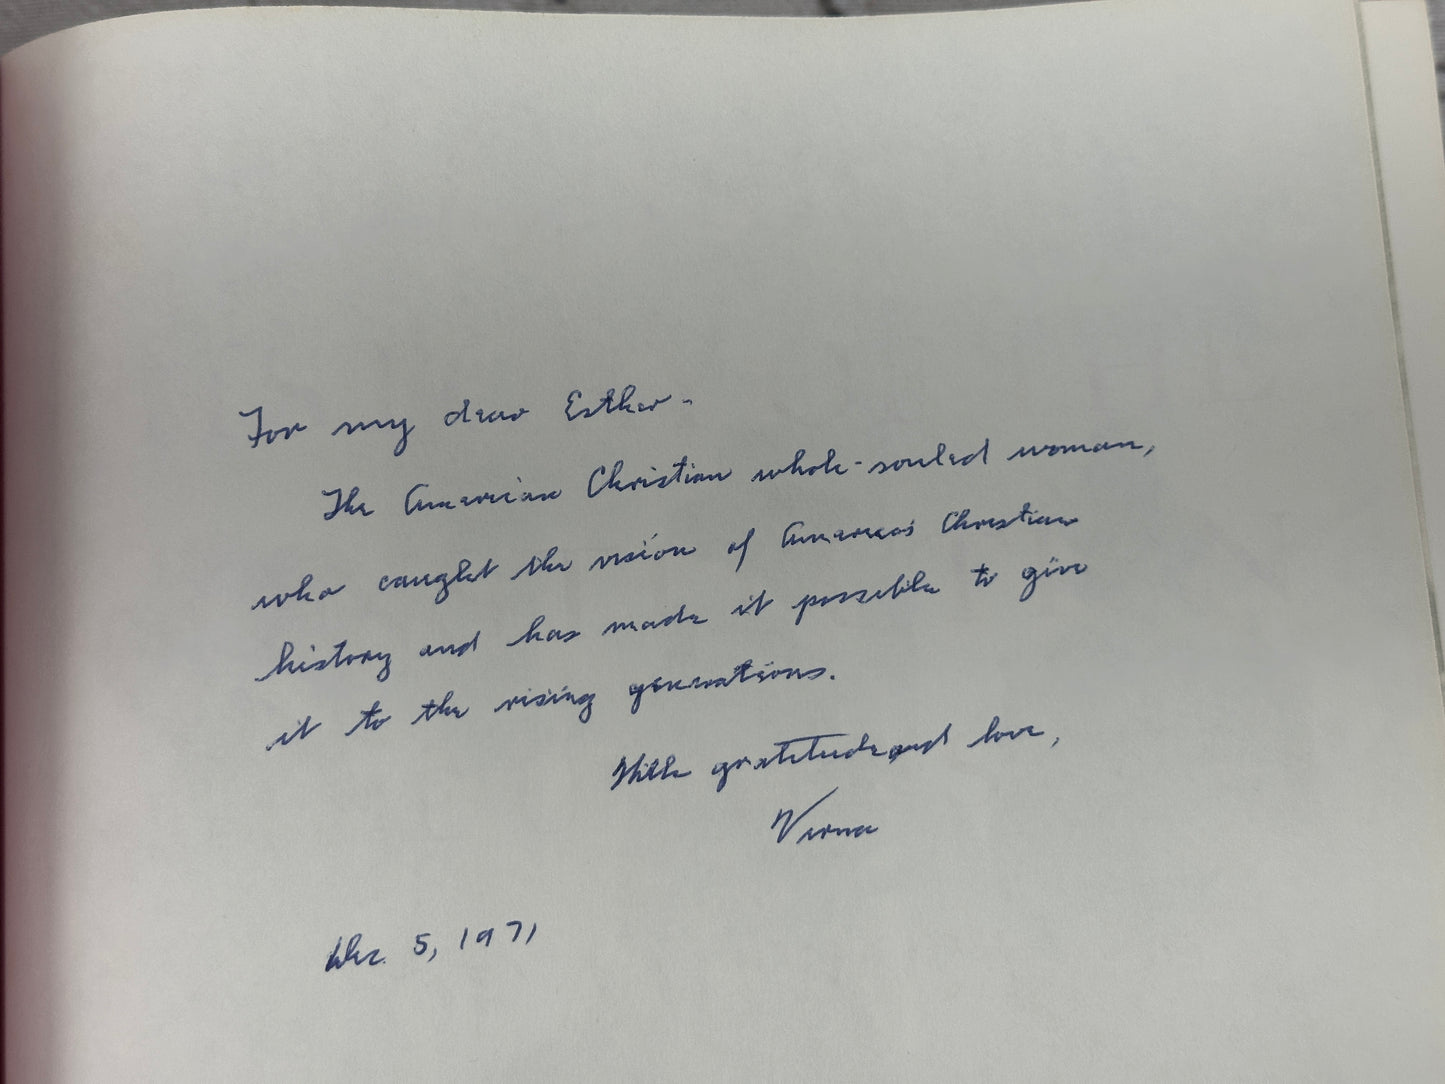 For my dear Esther -
The American Christian whole-souled woman,
who caught the vision of America's Christian
history and has made it possible to give
it to the rising generations.
With gratitude and love,
Verna
Dec. 5, 1971